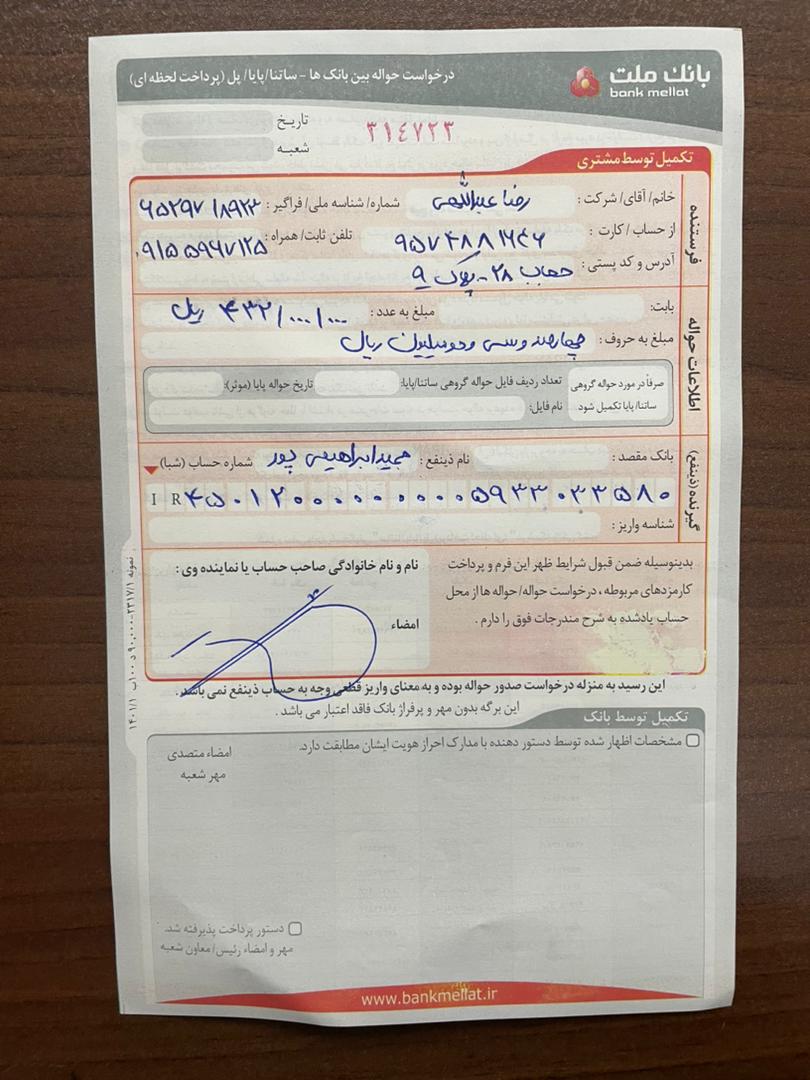 بانک ملت
bank mellat
درخواست حواله بین بانک ها - ساتنا/پایا/ پل (پرداخت لحظه ای)
تاریخ
۳۱۴۷۲۳
شعبه
تکمیل توسط مشتری
فرستنده
خانم/ آقای/ شرکت : رضا عبداللهی شماره/ شناسه ملی/ فراگیر :
از حساب/ کارت : تلفن ثابت/ همراه :
آدرس و کد پستی : ۲۸ - پلاک ۹
اطلاعات حواله
بابت: مبلغ به عدد : ۴۳۲/۰۰۰/۰۰۰ ریال
مبلغ به حروف : چهارصد و سی و دو میلیون ریال
صرفاً در مورد حواله گروهی ساتنا/ پایا تکمیل شود.
تعداد ردیف فایل حواله گروهی ساتنا/پایا: تاریخ حواله پایا (موثر):
نام فایل:
گیرنده (ذینفع)
بانک مقصد : نام ذینفع : مجید ابراهیمی پور شماره حساب (شبا)
IR ۴۵۰۱۲۰۰۰۰۰۰۰۰۰۰۵۹۳۳۰۳۳۵۸۰
شناسه واریز :
بدینوسیله ضمن قبول شرایط ظهر این فرم و پرداخت
کارمزدهای مربوطه ، درخواست حواله/ حواله ها از محل
حساب یادشده به شرح مندرجات فوق را دارم .
نام و نام خانوادگی صاحب حساب یا نماینده وی :
امضاء
این رسید به منزله درخواست صدور حواله بوده و به معنای واریز قطعی وجه به حساب ذینفع نمی باشد .
این برگه بدون مهر و پرفراژ بانک فاقد اعتبار می باشد .
تکمیل توسط بانک
مشخصات اظهار شده توسط دستور دهنده با مدارک احراز هویت ایشان مطابقت دارد.
امضاء متصدی
مهر شعبه
دستور پرداخت پذیرفته شد.
مهر و امضاء رئیس/ معاون شعبه
www.bankmellat.ir